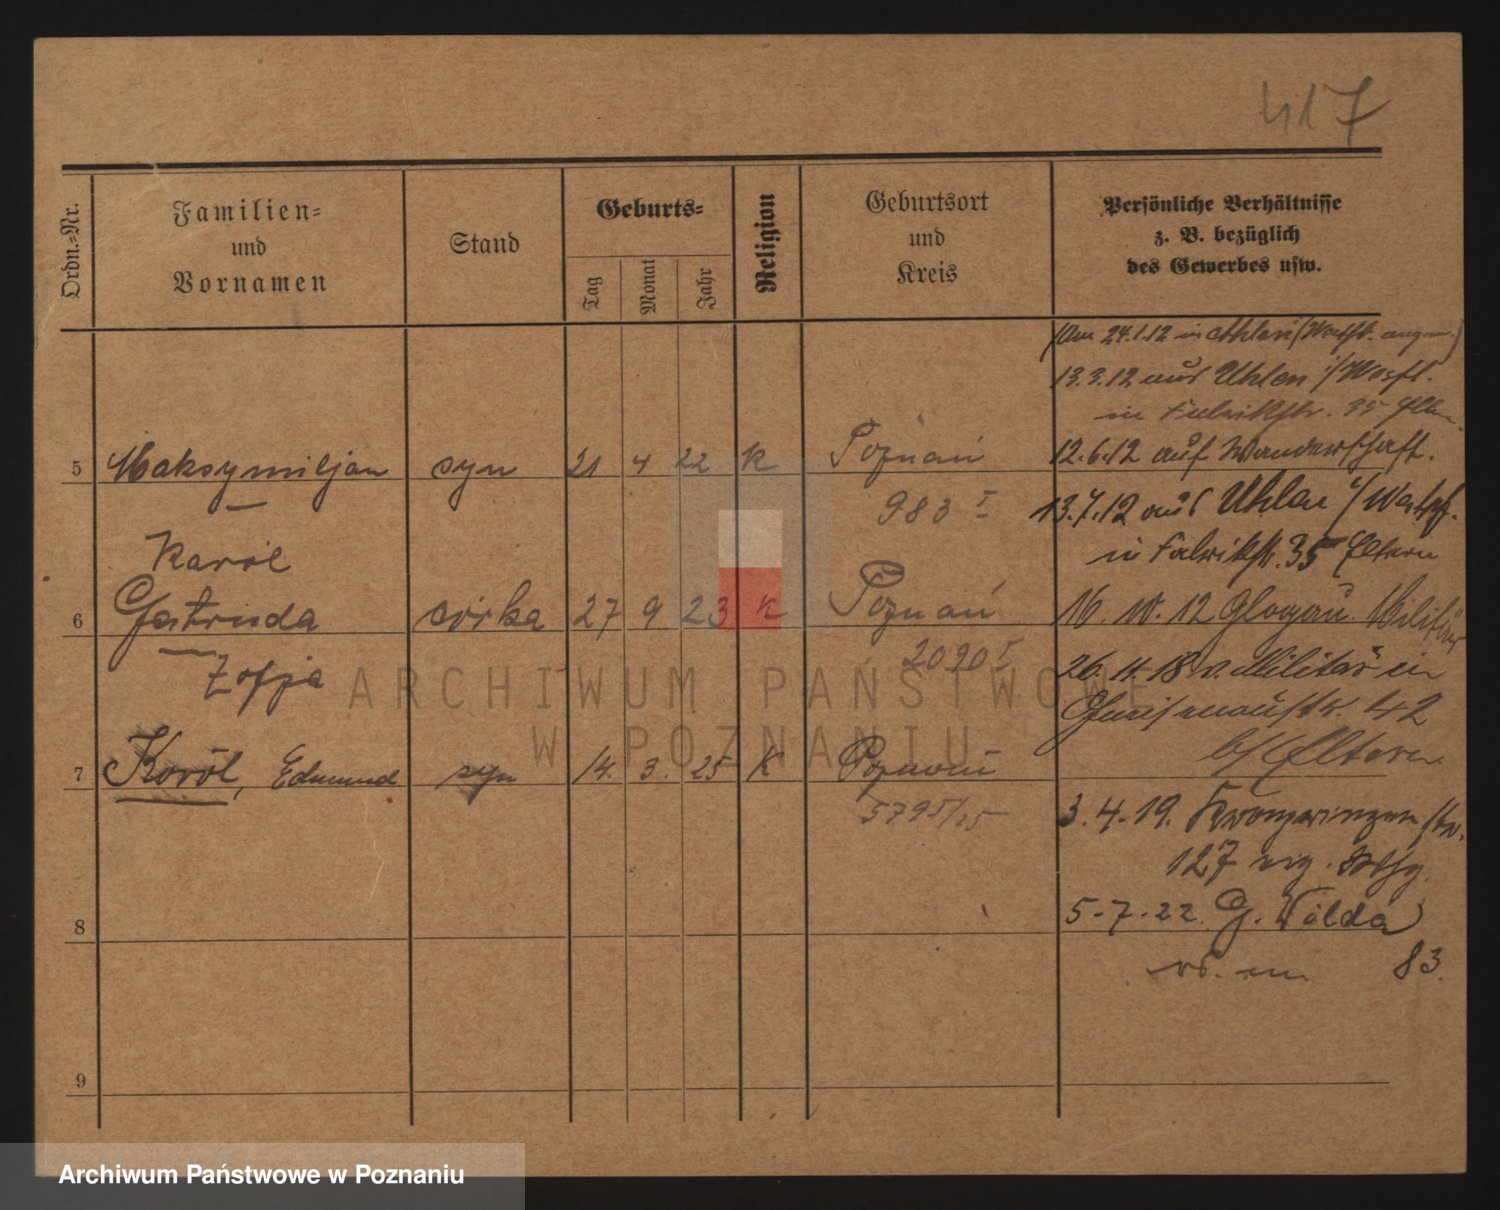 417
Ordn.=Nr.
Familien=
und
Vornamen
Stand
Geburts=
Tag
Monat
Jahr
Religion
Geburtsort
und
Kreis
Persönliche Verhältnisse
z. B. bezüglich
des Gewerbes usw.
(Am 24.1.12 in Ahlen i/Westf. angem.)
13.3.12 aus Ahlen i/Westf.
in Fabrikstr. 35 Eltern
5 Maksymiljan syn 21 4 22 K Poznań
12.6.12 auf Wanderschaft.
983 I
13.7.12 aus Ahlen i/Westf.
Karól
in Fabrikstr. 35 Eltern
6 Gertruda córka 27 9 23 K Poznań
16. 10. 12 Glogau Militär
Zofja
2090 I
26. 11. 18 v. Militär in
Gneisenaustr. 42
b/ Eltern.
7 Karól, Edmund syn 14. 3. 25 K Poznań
5795/25
3. 4. 19. Kronprinzenstr.
127 eig. Whg.
8
5-7-22. G. Wilda
83.
9
ARCHIWUM PAŃSTWOWE
W POZNANIU
Archiwum Państwowe w Poznaniu